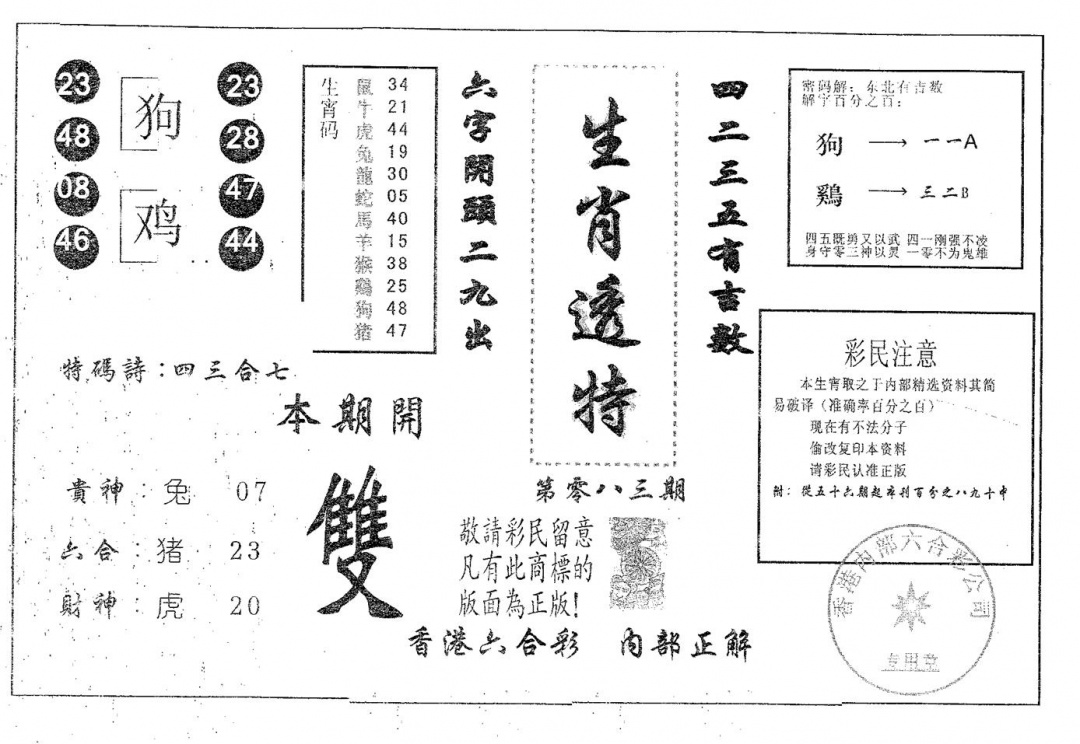 23
48
08
46
狗
鸡
23
28
47
44
生宵码
鼠 34
牛 21
虎 44
兔 19
龍 30
蛇 05
馬 40
羊 15
猴 38
鷄 25
狗 48
猪 47
六字開頭二九出
生肖透特
四二三五有吉数
密码解：东北有吉数
解字百分之百：
狗 → 一一A
鷄 → 三二B
四五既勇又以武 四一刚强不凌
身守零三神以灵 一零不为鬼雄
特碼詩：四三合七
本期開
雙
貴神：兔 07
六合：猪 23
財神：虎 20
第零八三期
敬請彩民留意
凡有此商標的
版面為正版！
香港六合彩 内部正解
彩民注意
本生宵取之于内部精选资料其简
易破译（准确率百分之百）
现在有不法分子
偷改复印本资料
请彩民认准正版
附：從五十六期起准到百分之八九十中
香港内部六合彩公司
专用章